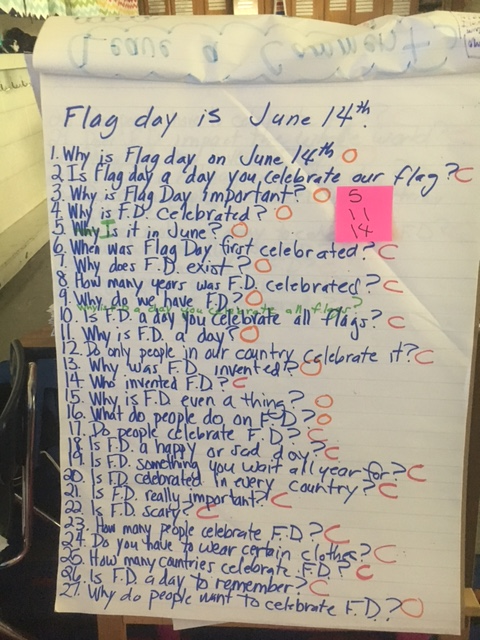 Leave a Comment
Flag day is June 14th.
1. Why is Flag day on June 14th O
2. Is Flag day a day you celebrate our flag? C
3. Why is Flag Day important? O
4. Why is F.D. celebrated? O
5. Why Is it in June? O
6. When was Flag Day first celebrated? C
7. Why does F.D. exist? O
8. How many years was F.D. celebrated? C
9. Why do we have F.D.? O
Why is F.D. a day you celebrate all flags?
10. Is F.D. a day you celebrate all flags? C
11. Why is F.D. a day? O
12. Do only people in our country celebrate it? C
13. Why was F.D. invented? O
14. Who invented F.D.? C
15. Why is F.D. even a thing? O
16. What do people do on F.D.? O
17. Do people celebrate F.D.? C
18. Is F.D. a happy or sad day? C
19. Is F.D. something you wait all year for? C
20. Is F.D. celebrated in every country? C
21. Is F.D. really important? C
22. Is F.D. scary? C
23. How many people celebrate F.D.? C
24. Do you have to wear certain clothes? C
25. How many countries celebrate F.D.? C
26. Is F.D. a day to remember? C
27. Why do people want to celebrate F.D.? O
5
11
14